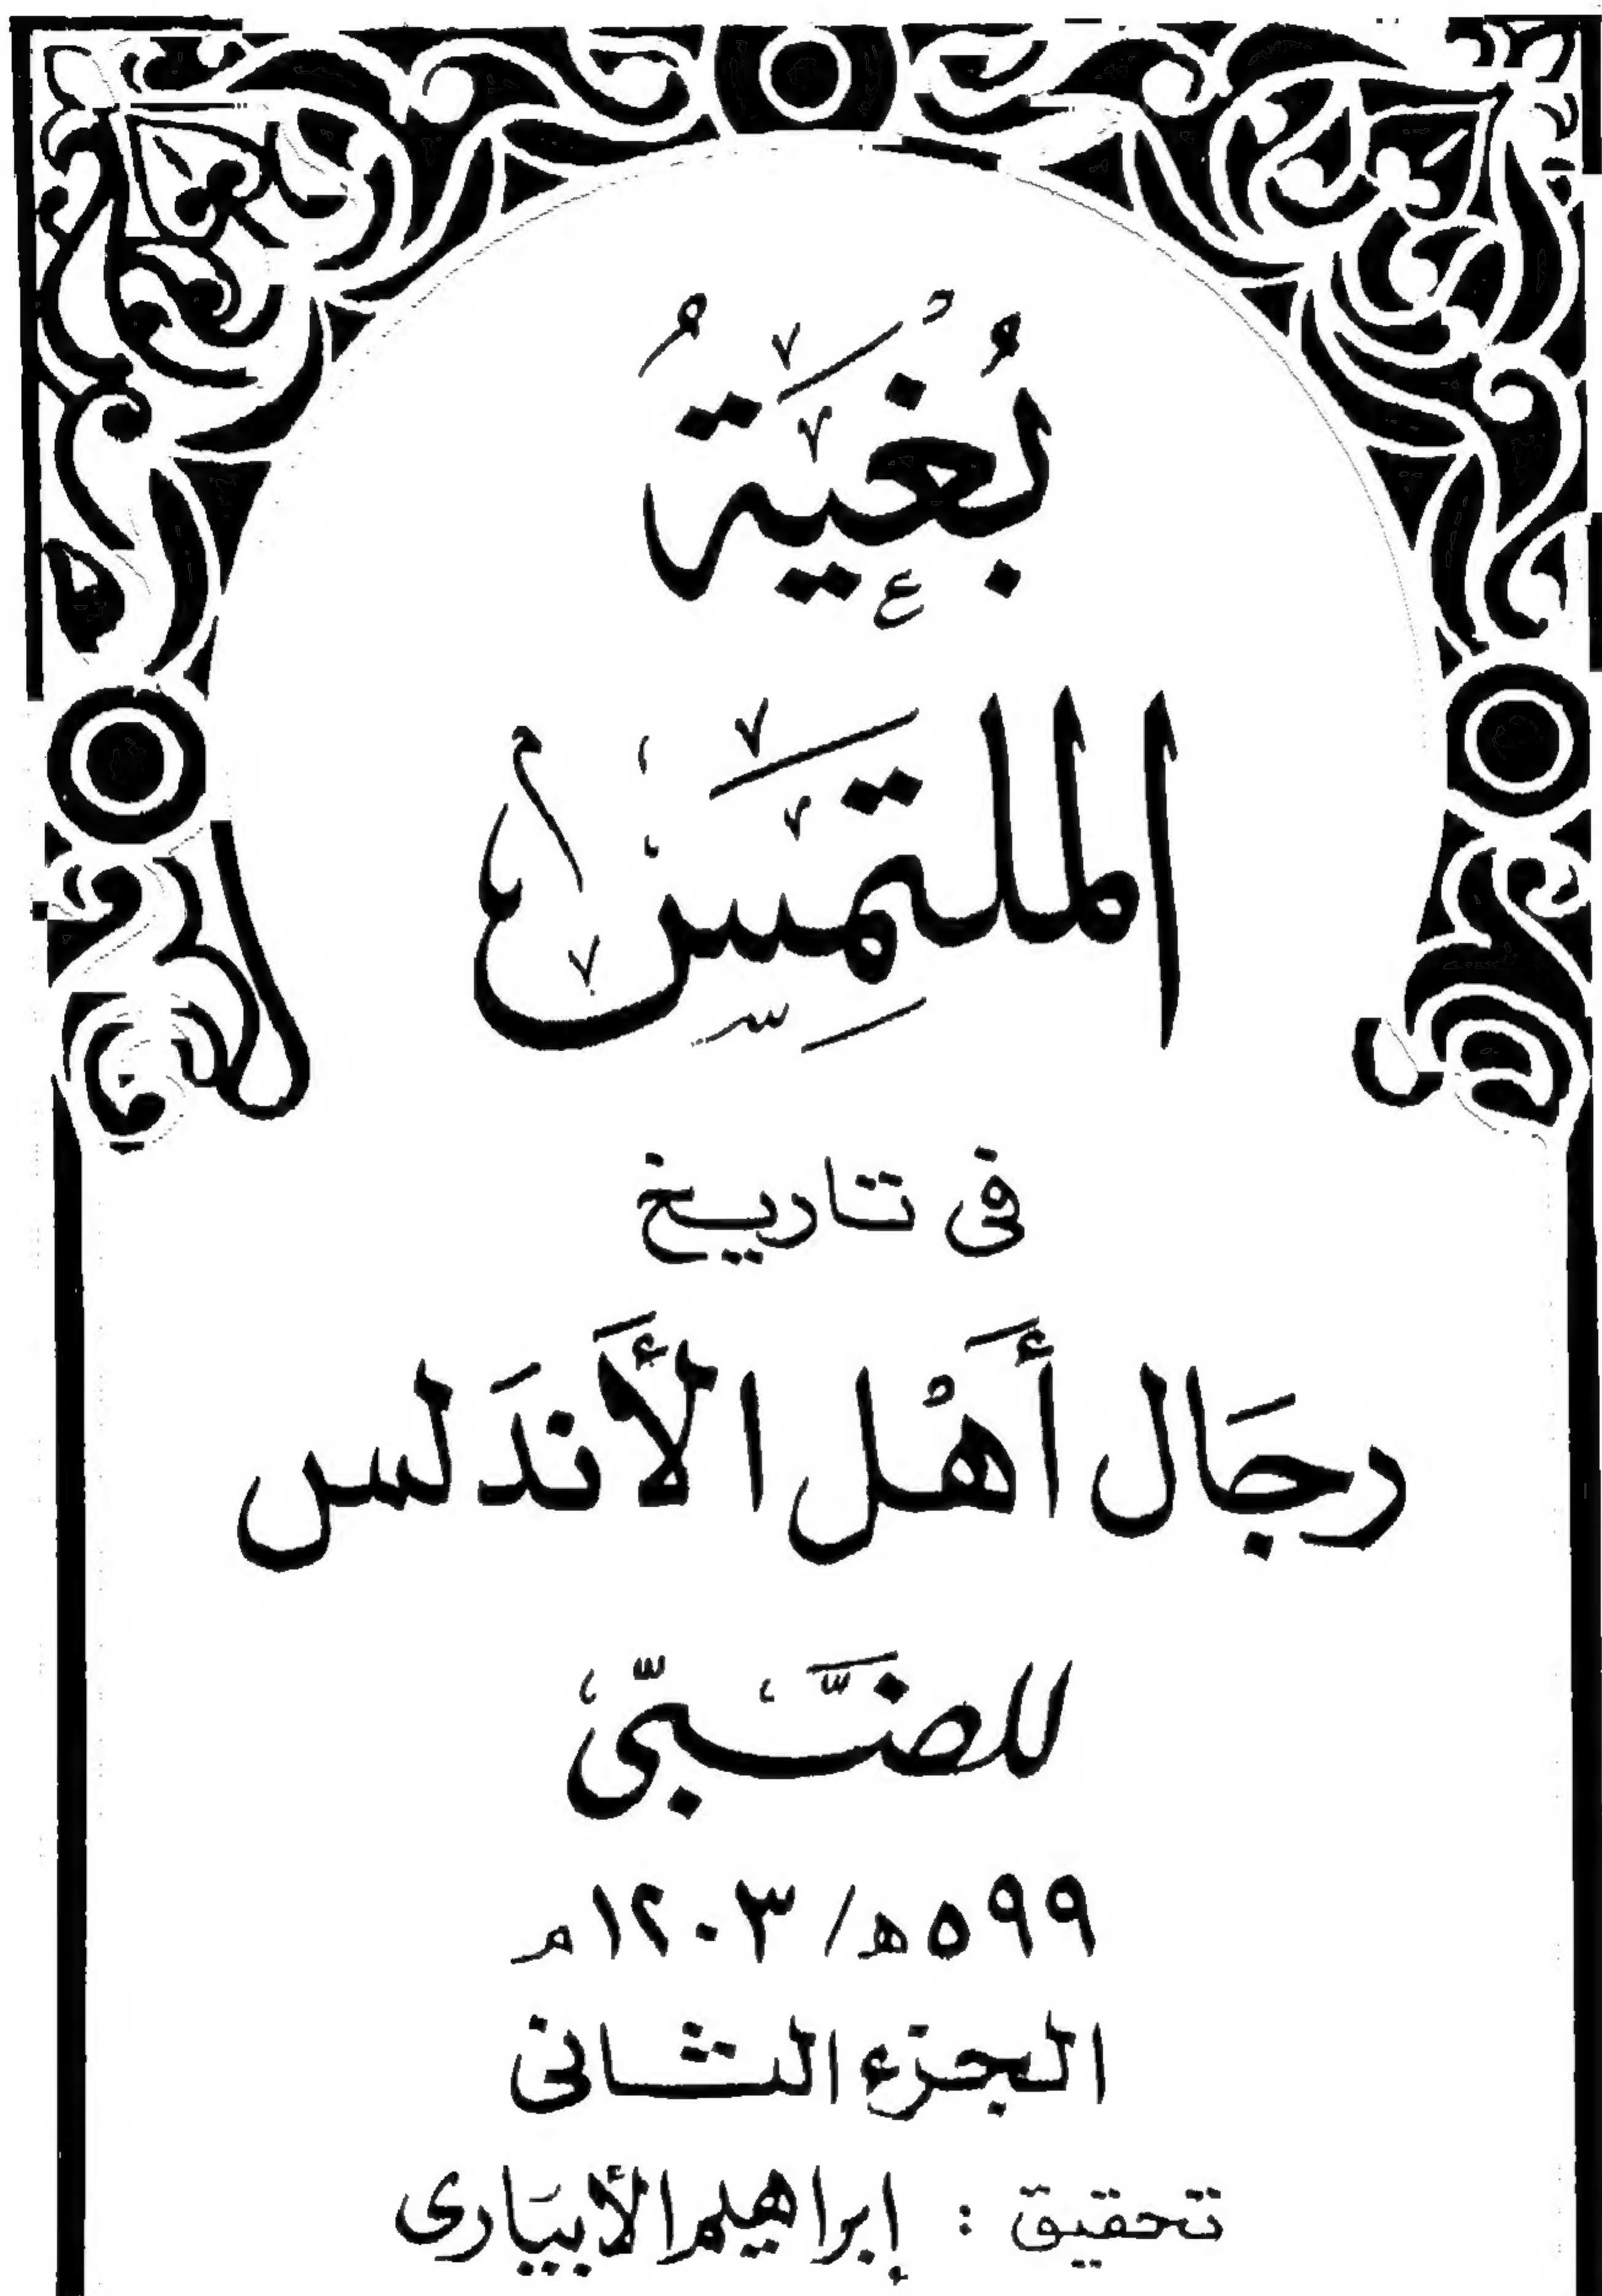 بُغْيَةُ
الملتمِس
فى تاريخ
رجَال أَهْل الأَندَلس
للضَّبِّىّ
٥٩٩ هـ/ ١٢٠٣م
الجزء الثانى
تحقيق : إبراهيم الأبيَارى